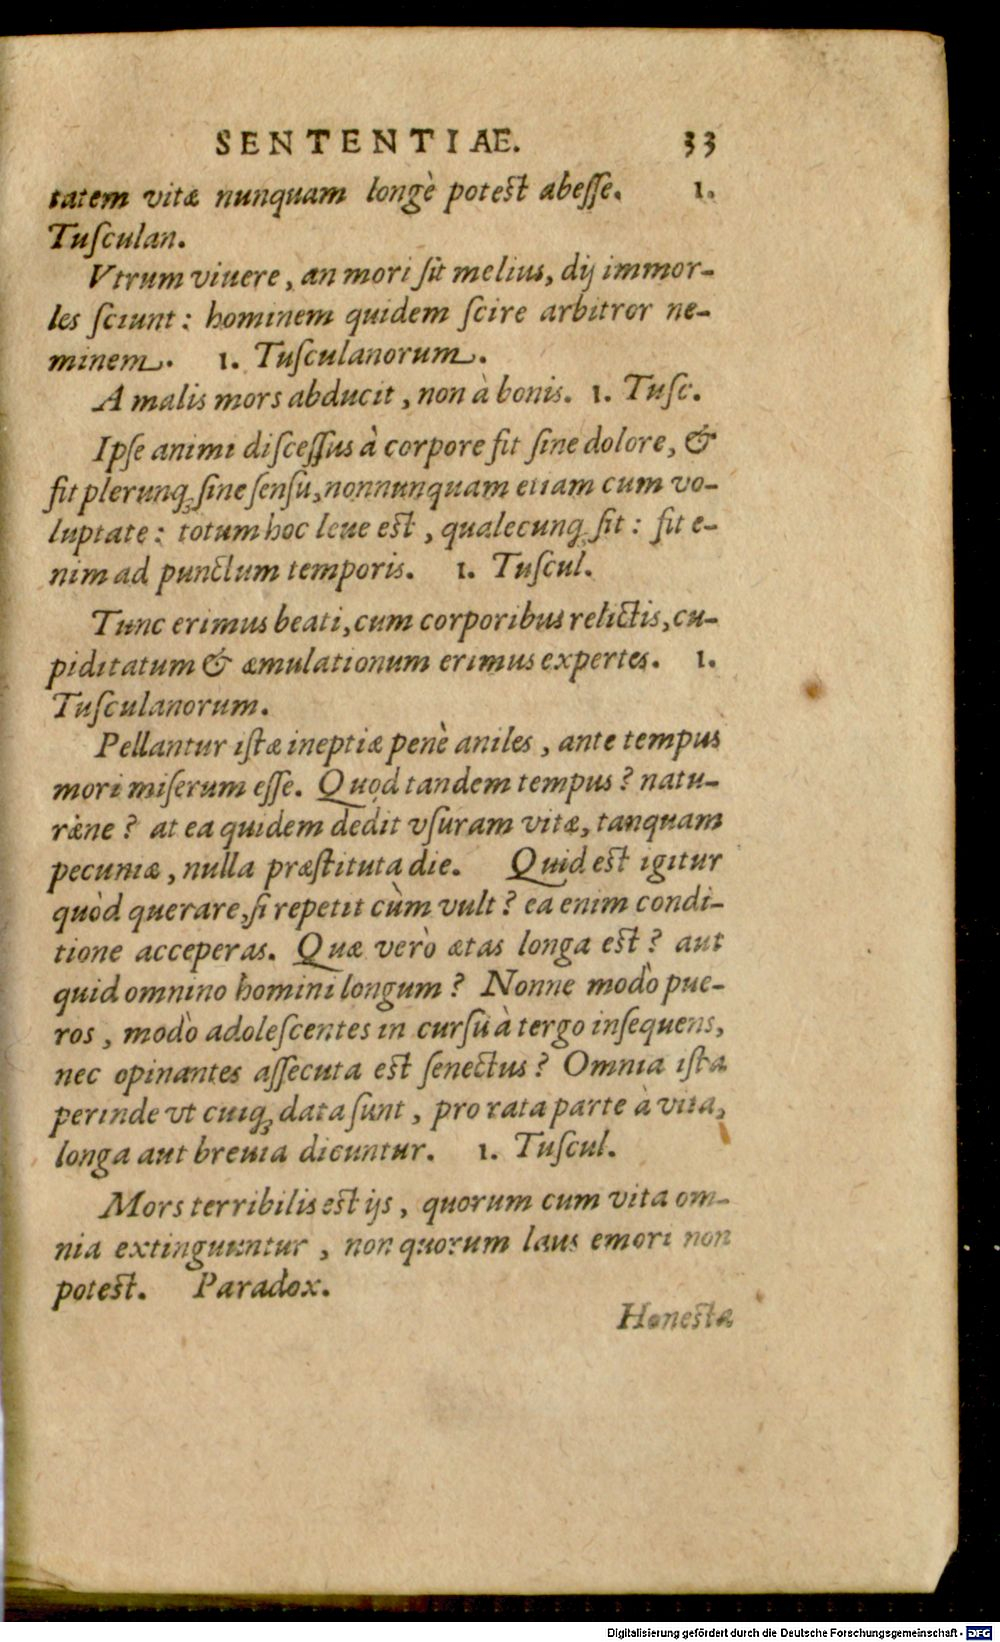 SENTENTIAE. 33
tatem vitæ nunquam longè potest abeſſe. 1.
Tuſculan.
Vtrum viuere, an mori ſit melius, dij immor-
les ſciunt: hominem quidem ſcire arbitror ne-
minem. 1. Tuſculanorum.
A malis mors abducit, non à bonis. 1. Tuſc.
Ipſe animi diſceſſus à corpore fit ſine dolore, &
fit plerunq; ſine ſenſu, nonnunquam etiam cum vo-
luptate: totum hoc leue est, qualecunq; ſit: fit e-
nim ad punctum temporis. 1. Tuſcul.
Tunc erimus beati, cum corporibus relictis, cu-
piditatum & æmulationum erimus expertes. 1.
Tuſculanorum.
Pellantur iſtæ ineptiæ penè aniles, ante tempus
mori miſerum eſſe. Quod tandem tempus? natu-
ræne? at ea quidem dedit vſuram vitæ, tanquam
pecuniæ, nulla præſtituta die. Quid est igitur
quòd querare, ſi repetit cùm vult? ea enim condi-
tione acceperas. Quæ verò ætas longa est? aut
quid omnino homini longum? Nonne modò pue-
ros, modò adoleſcentes in curſu à tergo inſequens,
nec opinantes aſſecuta est ſenectus? Omnia iſta
perinde vt cuiq; data ſunt, pro rata parte à vita,
longa aut breuia dicuntur. 1. Tuſcul.
Mors terribilis est ijs, quorum cum vita om-
nia extinguuntur, non quorum laus emori non
potest. Paradox.
Honesta
Digitalisierung gefördert durch die Deutsche Forschungsgemeinschaft - DFG